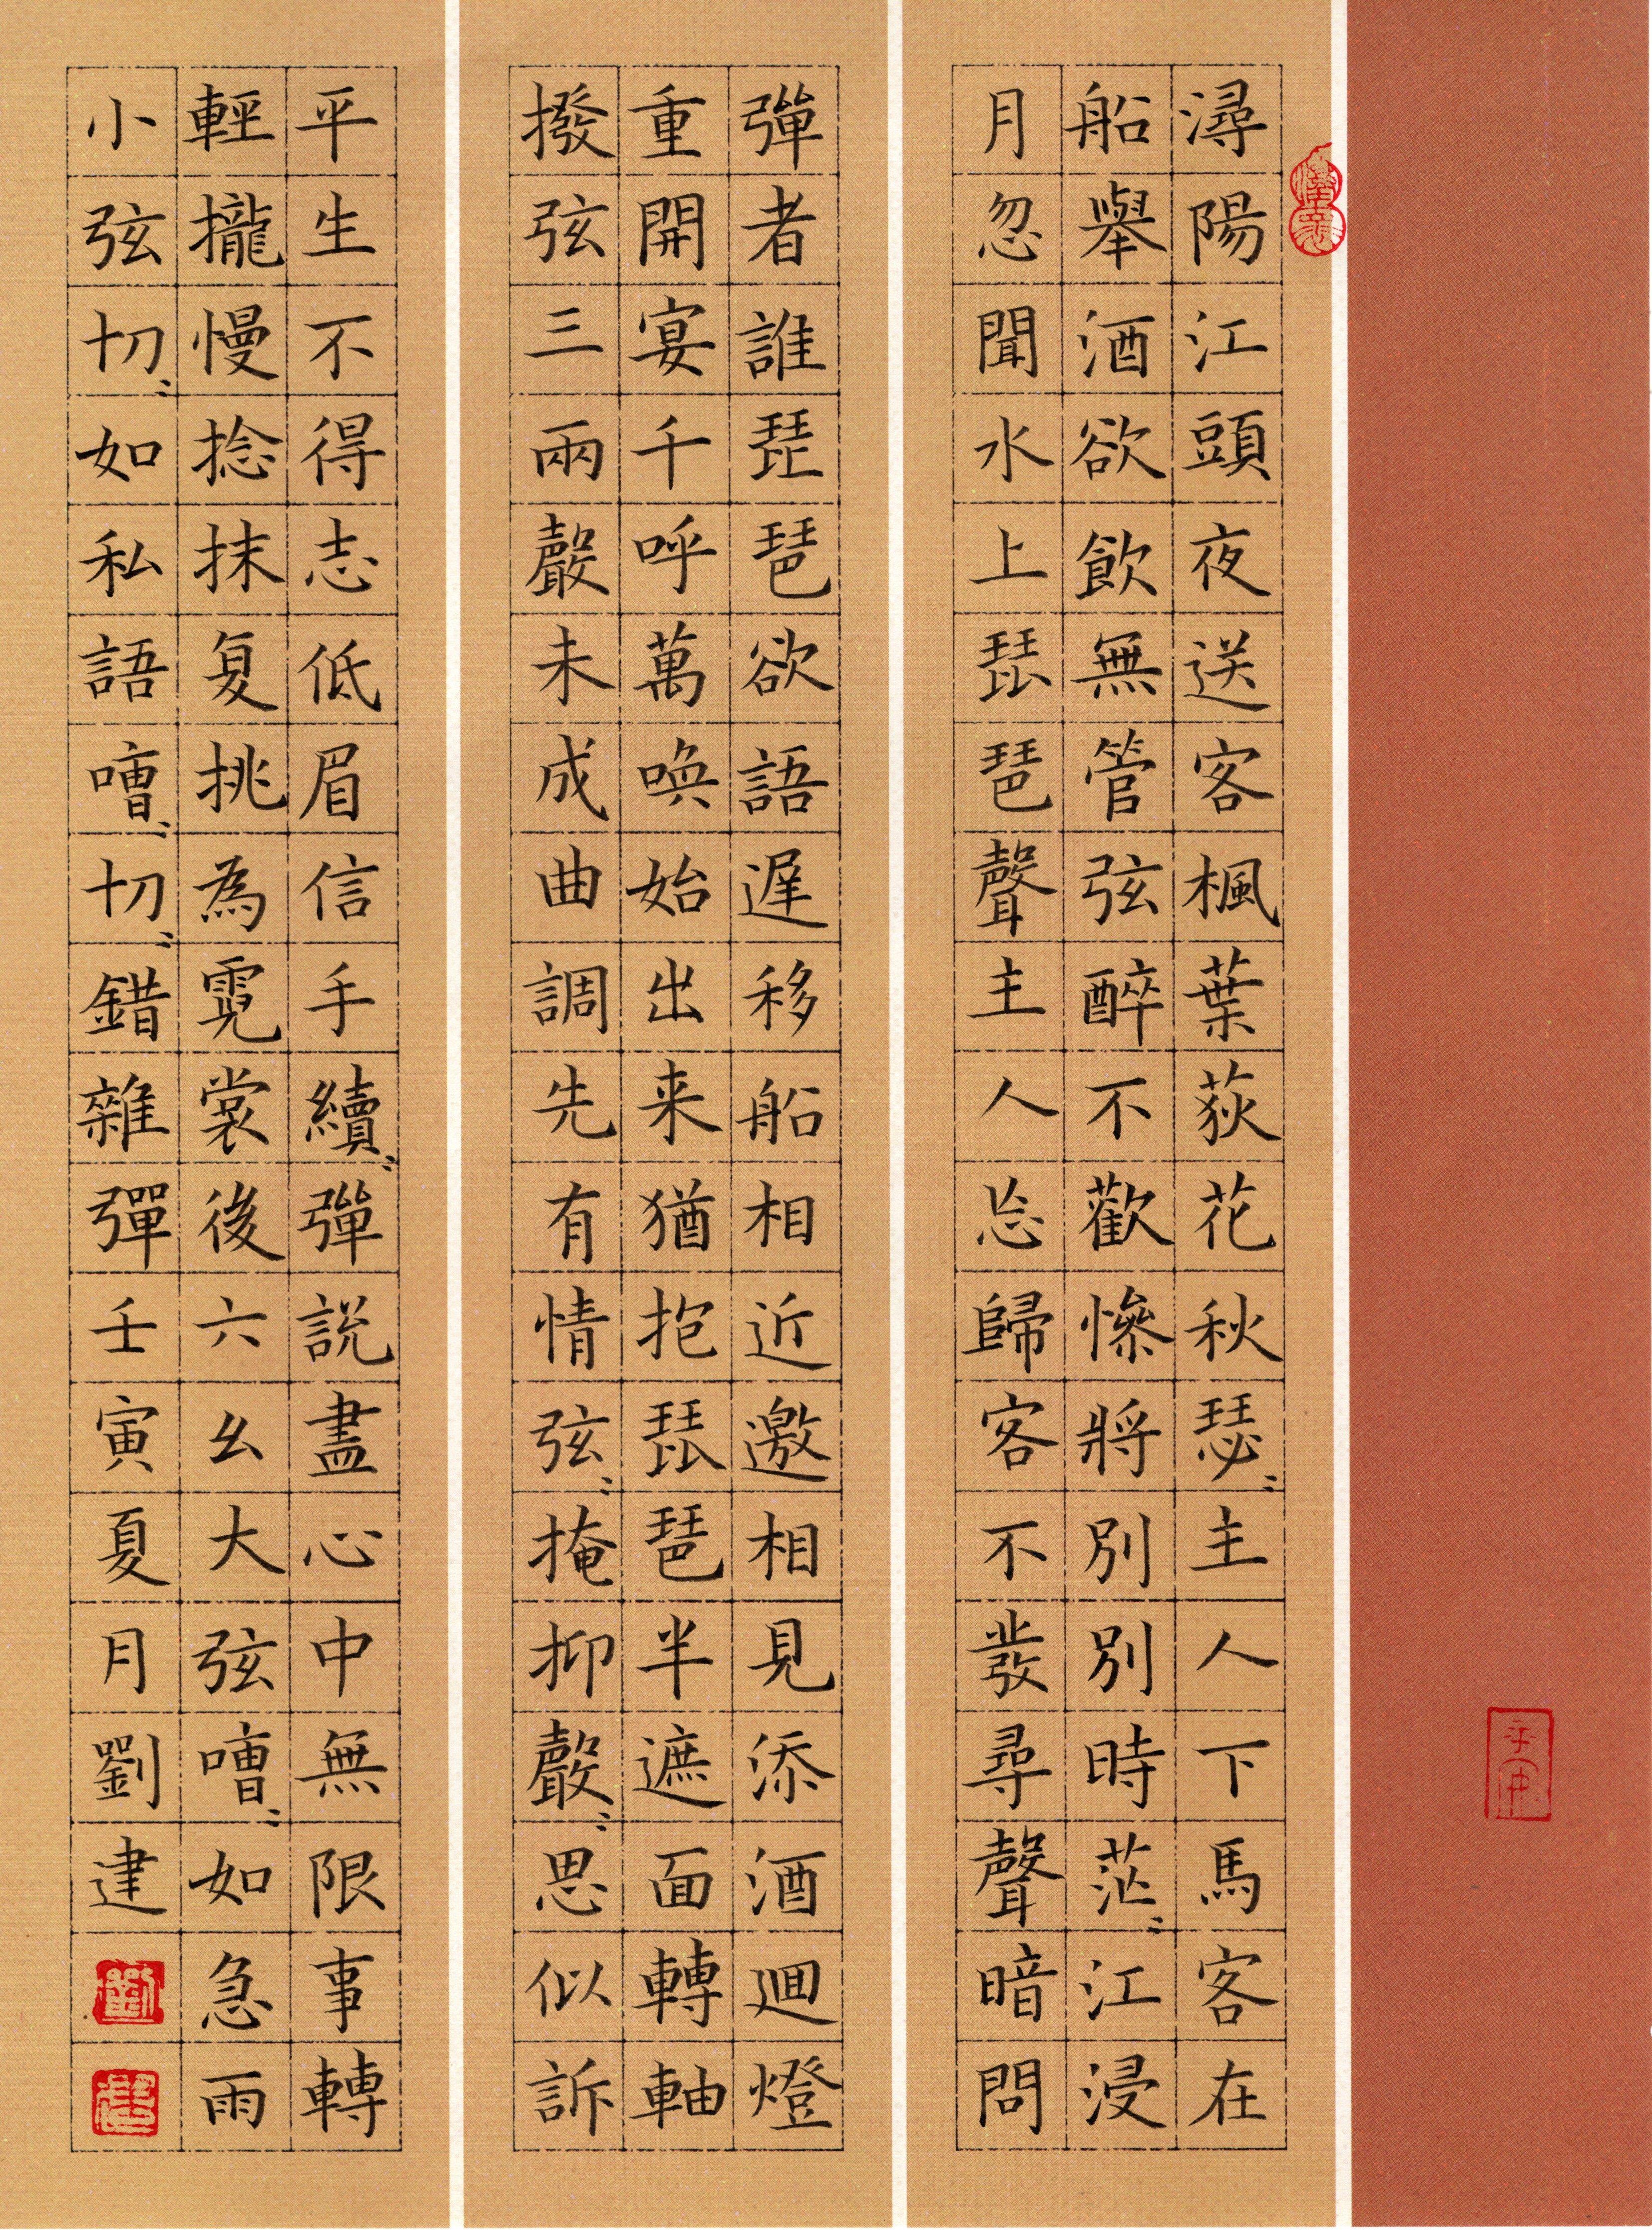 潯陽江頭夜送客楓葉荻花秋瑟〻主人下馬客在
船舉酒欲飲無管弦醉不歡慘將別別時茫〻江浸
月忽聞水上琵琶聲主人忘歸客不發尋聲暗問
彈者誰琵琶欲語遲移船相近邀相見添酒迴燈
重開宴千呼萬喚始出来猶抱琵琶半遮面轉軸
撥弦三兩聲未成曲調先有情弦〻掩抑聲〻思似訴
平生不得志低眉信手續〻彈説盡心中無限事轉
輕攏慢捻抹复挑為霓裳後六幺大弦嘈〻如急雨
小弦切〻如私語嘈〻切〻錯雜彈壬寅夏月劉建